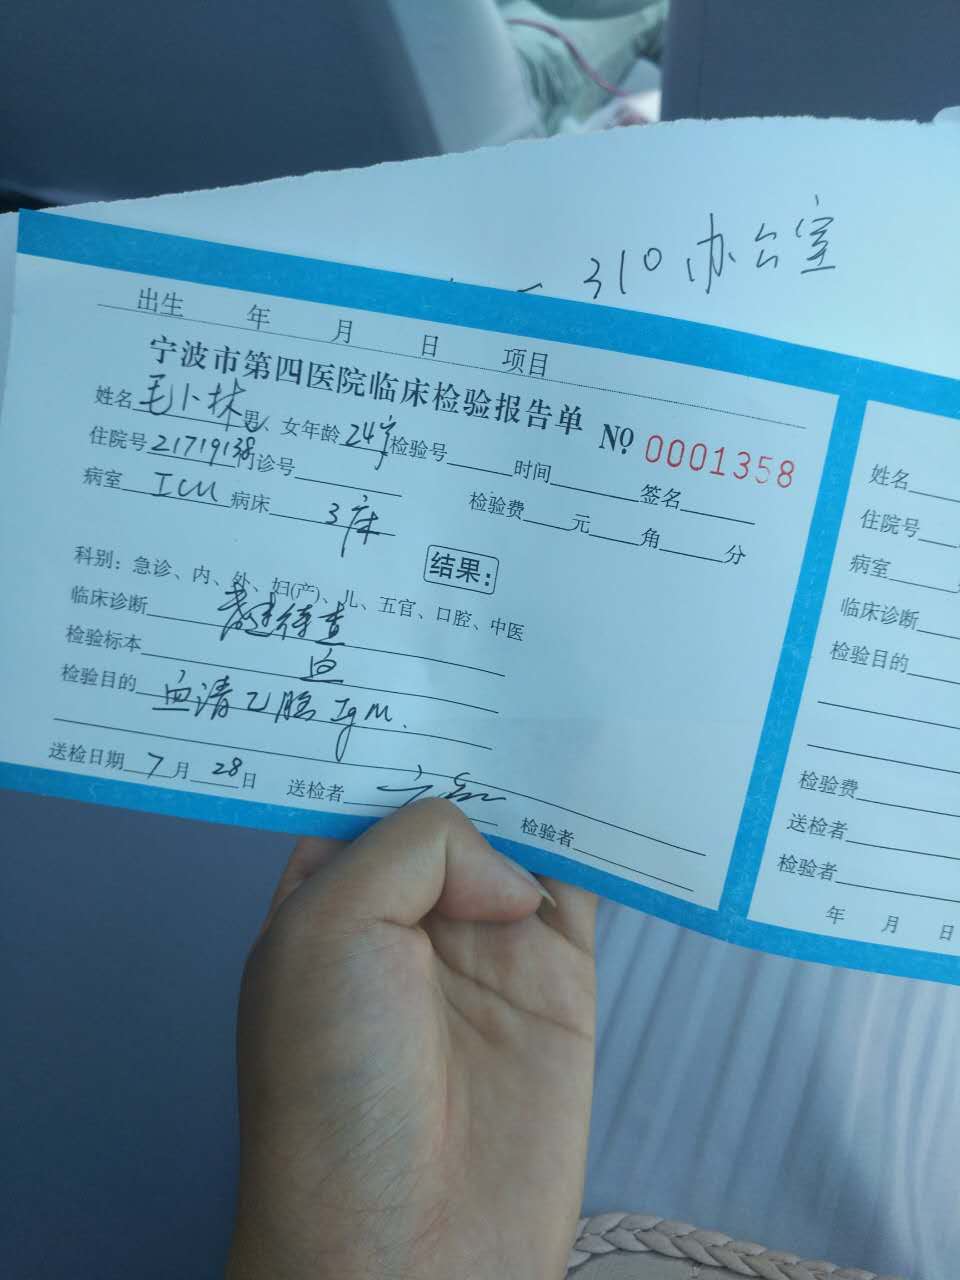 310 办公室
出生 年 月 日 项目
宁波市第四医院临床检验报告单 № 0001358
姓名 毛卜林 男、女 年龄 24岁 检验号 时间 签名
住院号 21719138 门诊号 检验费 元 角 分
病室 ICU 病床 3床
结果:
科别:急诊、内、外、妇(产)、儿、五官、口腔、中医
临床诊断 待查
检验标本 血
检验目的 血清乙脑 IgM.
送检日期 7 月 28 日 送检者 检验者
姓名
住院号
病室
临床诊断
检验目的
检验费
送检者
检验者
年 月 日